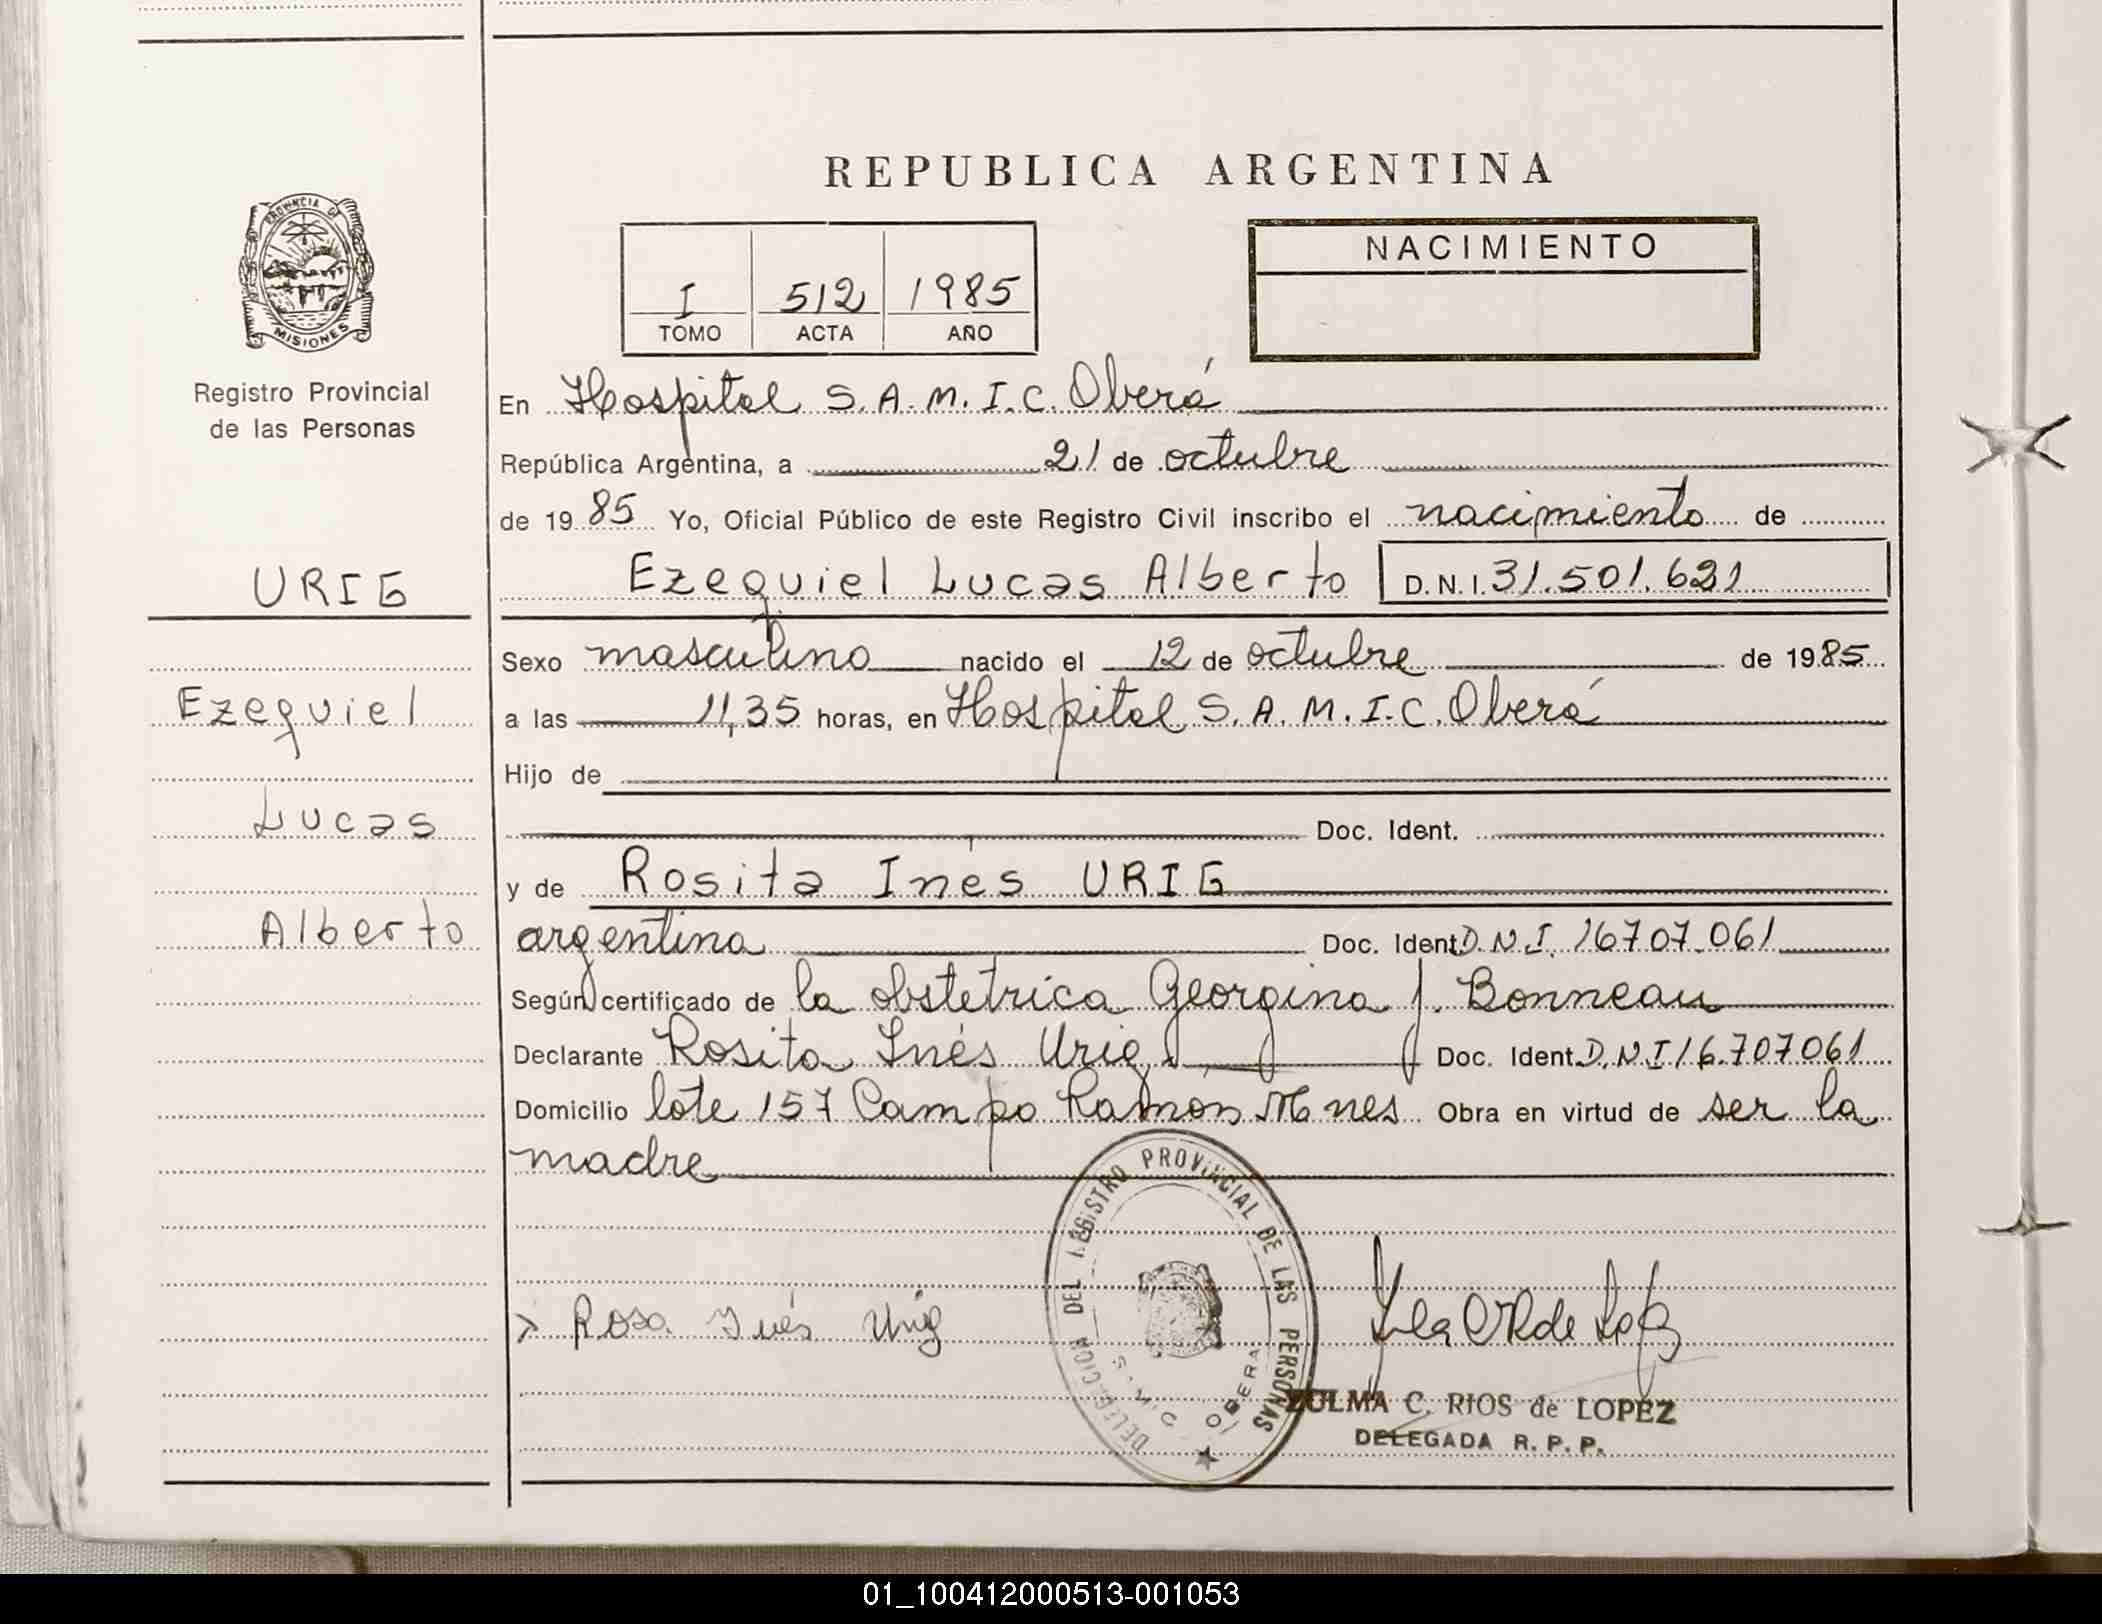 REPUBLICA ARGENTINA
PROVINCIA D
MISIONES
Registro Provincial
de las Personas
I 512 1985
TOMO ACTA AÑO
NACIMIENTO
En Hospital S.A.M.I.C. Oberá
República Argentina, a 21 de octubre
de 1985 Yo, Oficial Público de este Registro Civil inscribo el nacimiento de
URIG
Ezequiel Lucas Alberto D.N.I. 31.501.621
Sexo masculino nacido el 12 de octubre de 1985
Ezequiel
a las 11,35 horas, en Hospital S.A.M.I.C. Oberá
Hijo de
Lucas
Doc. Ident.
y de Rosita Inés URIG
Alberto
argentina Doc. Ident D.N.I. 16707.061
Según certificado de la obstetrica Georgina J. Bonneau
Declarante Rosita Inés Urig Doc. Ident. D.N.I 16.707061
Domicilio lote 157 Campo Ramón Mnes Obra en virtud de ser la
madre
DELEGACION DEL REGISTRO PROVINCIAL DE LAS PERSONAS
OBERA
Rosa Inés Urig
ZULMA C. RIOS de LOPEZ
DELEGADA R. P. P.
01_100412000513-001053